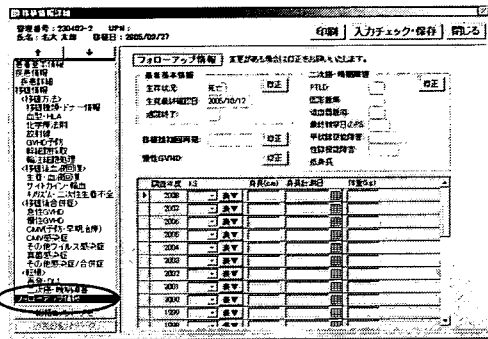 移植情報詳細
管理番号：230402-2 UPN：
氏名：名大 太郎 移植日：2005/09/27
印刷 入力チェック・保存 閉じる
↑ ↓
患者基本情報
疾患情報
疾患詳細
移植情報
<移植方法>
移植種類・ドナー情報
血型・HLA
化学療法剤
放射線
GVHD予防
幹細胞採取
輸注細胞処理
<移植後血液回復>
生着・血液回復
サイトカイン・輸血
キメリズム・二次性生着不全
<移植後合併症>
急性GVHD
慢性GVHD
CMV(予防・早期治療)
CMV感染症
その他ウイルス感染症
真菌感染症
その他感染症/合併症
<転帰>
再発・DLI
二次癌・晩期障害
フォローアップ情報
フォローアップ情報 変更がある場合は訂正をお願いいたします。
患者基本情報
生存状況: 死亡 訂正
生死最終確認日: 2005/10/12
追跡終了:
移植後初回再発: 訂正
慢性GVHD: 訂正
二次癌・晩期障害
PTLD: 訂正
固形腫瘍:
造血器腫瘍:
最終検査日のPS:
甲状腺機能障害:
性腺機能障害:
抵身長
調査年度 KS 身長(cm) 身長計測日 体重(kg)
2008
2007
2006
2005
2004
2003
2002
2001
2000
1999
1998